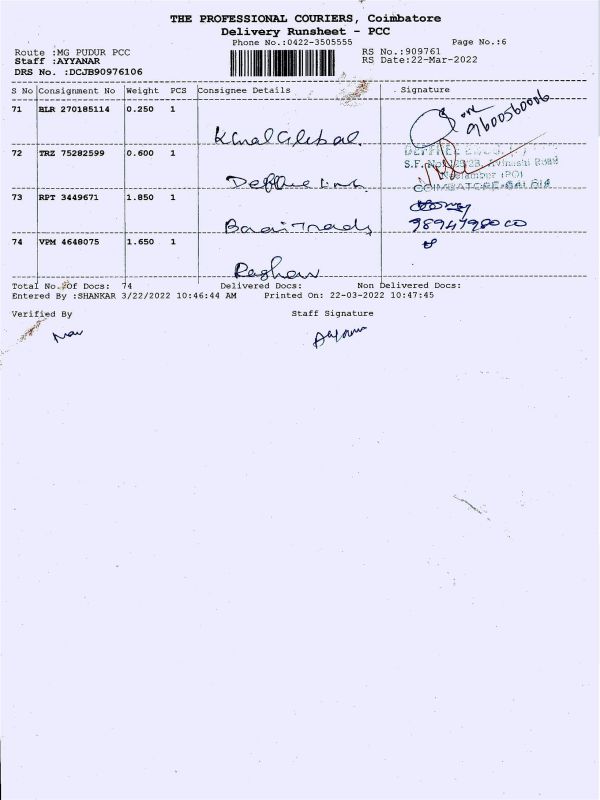 THE PROFESSIONAL COURIERS, Coimbatore
Delivery Runsheet - PCC
Phone No.:0422-3505555
Page No.:6
Route :MG PUDUR PCC
RS No.:909761
Staff :AYYANAR
RS Date:22-Mar-2022
DRS No. :DCJB90976106
S No Consignment No Weight PCS Consignee Details Signature
71 BLR 270185114 0.250 1
9600560006
72 TRZ 75282599 0.600 1
S.F. No. Avinashi Road
COIMBATORE-641 014
73 RPT 3449671 1.850 1
74 VPM 4648075 1.650 1
Raghav
Total No. Of Docs: 74 Delivered Docs: Non Delivered Docs:
Entered By :SHANKAR 3/22/2022 10:46:44 AM Printed On: 22-03-2022 10:47:45
Verified By Staff Signature